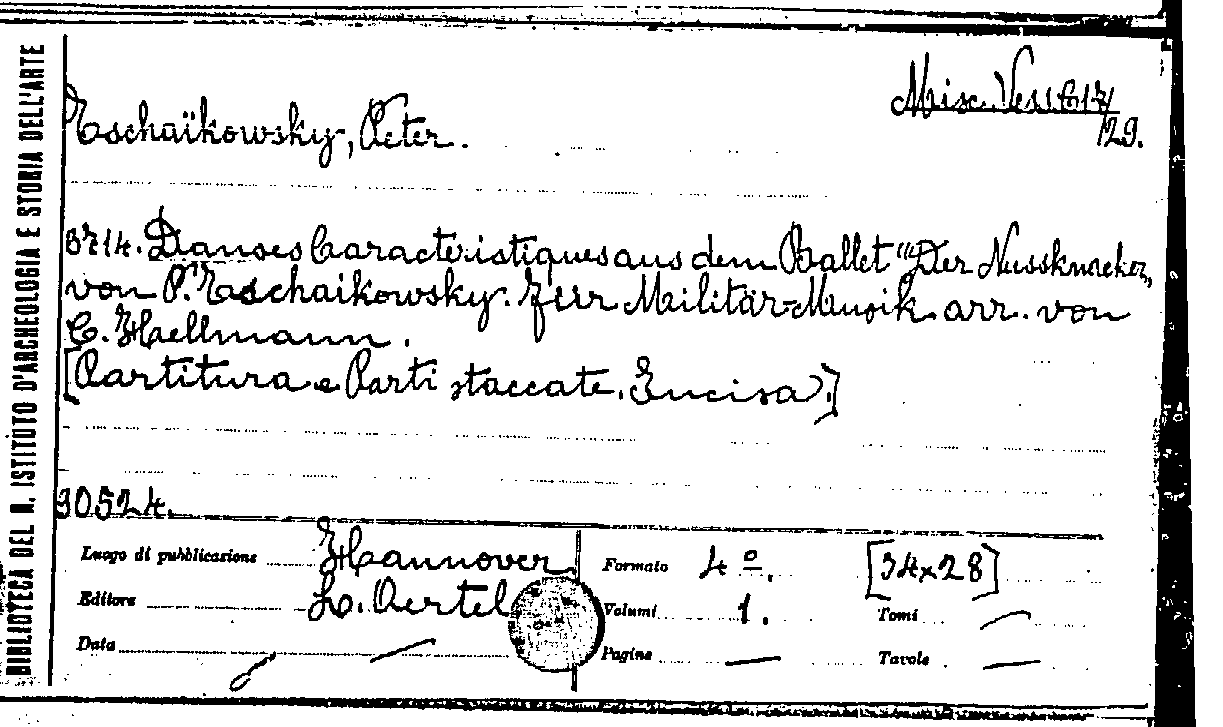 BIBLIOTECA DEL R. ISTITUTO D'ARCHEOLOGIA E STORIA DELL'ARTE
Misc. Vess. 617/
/29.
Tschaïkowsky, Peter.
3714. Danses Caracteristiques aus dem Ballet "Der Nussknacker"
von P. Tschaikowsky. für Militär-Musik. arr. von
C. Haellmann.
[Partitura e Parti staccate. Incisa.]
30524.
Luogo di pubblicazione Hannover Formato 4º. [34x28]
Editore L. Oertel Volumi 1. Tomi —
Data — Pagine — Tavole —